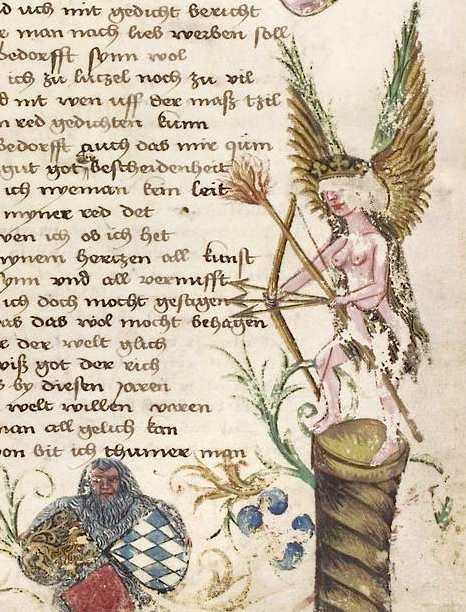 d uch mit gedicht bericht
r man nach lieb werben soll
bedorfft synn wol
ich zu lutzel noch zu vil
d mit wen uff der masz tzil
n red gedichten kunn
bedorfft auch das mir gunn
gut got bescheidenheit
ich nyeman kein leit
myner red det
wen ich ob ich het
mynem hertzen all kunst
synn vnd all vernufft
ich doch mocht gesagen
das das wol mocht behagen
r der welt glich
wisz got der rich
s by diesen Jaren
welt willen waren
man all gelich kan
von bit ich thumer man